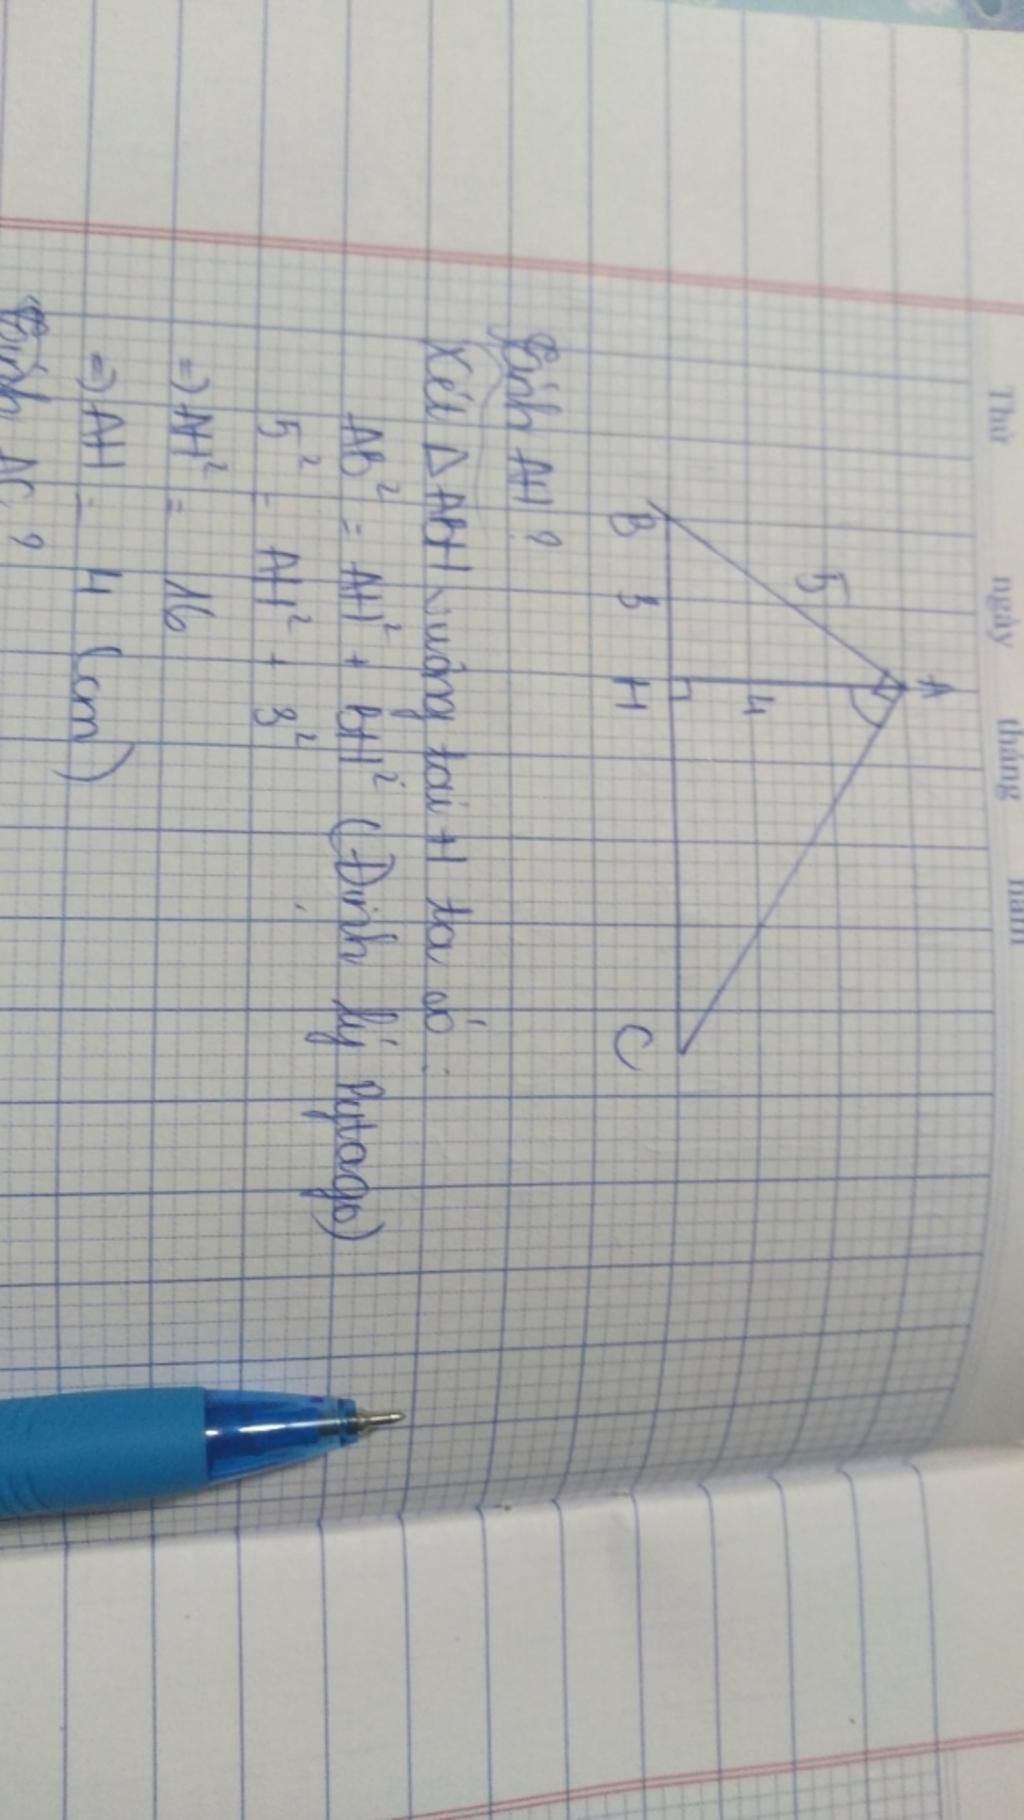 Thứ ngày tháng năm
A
5
4
B 3 H C
Tính AH?
Xét Δ ABH vuông tại H ta có:
AB² = AH² + BH² (Định lý Pytago)
5² = AH² + 3²
=> AH² = 16
=> AH = 4 (cm)
Tính AC?